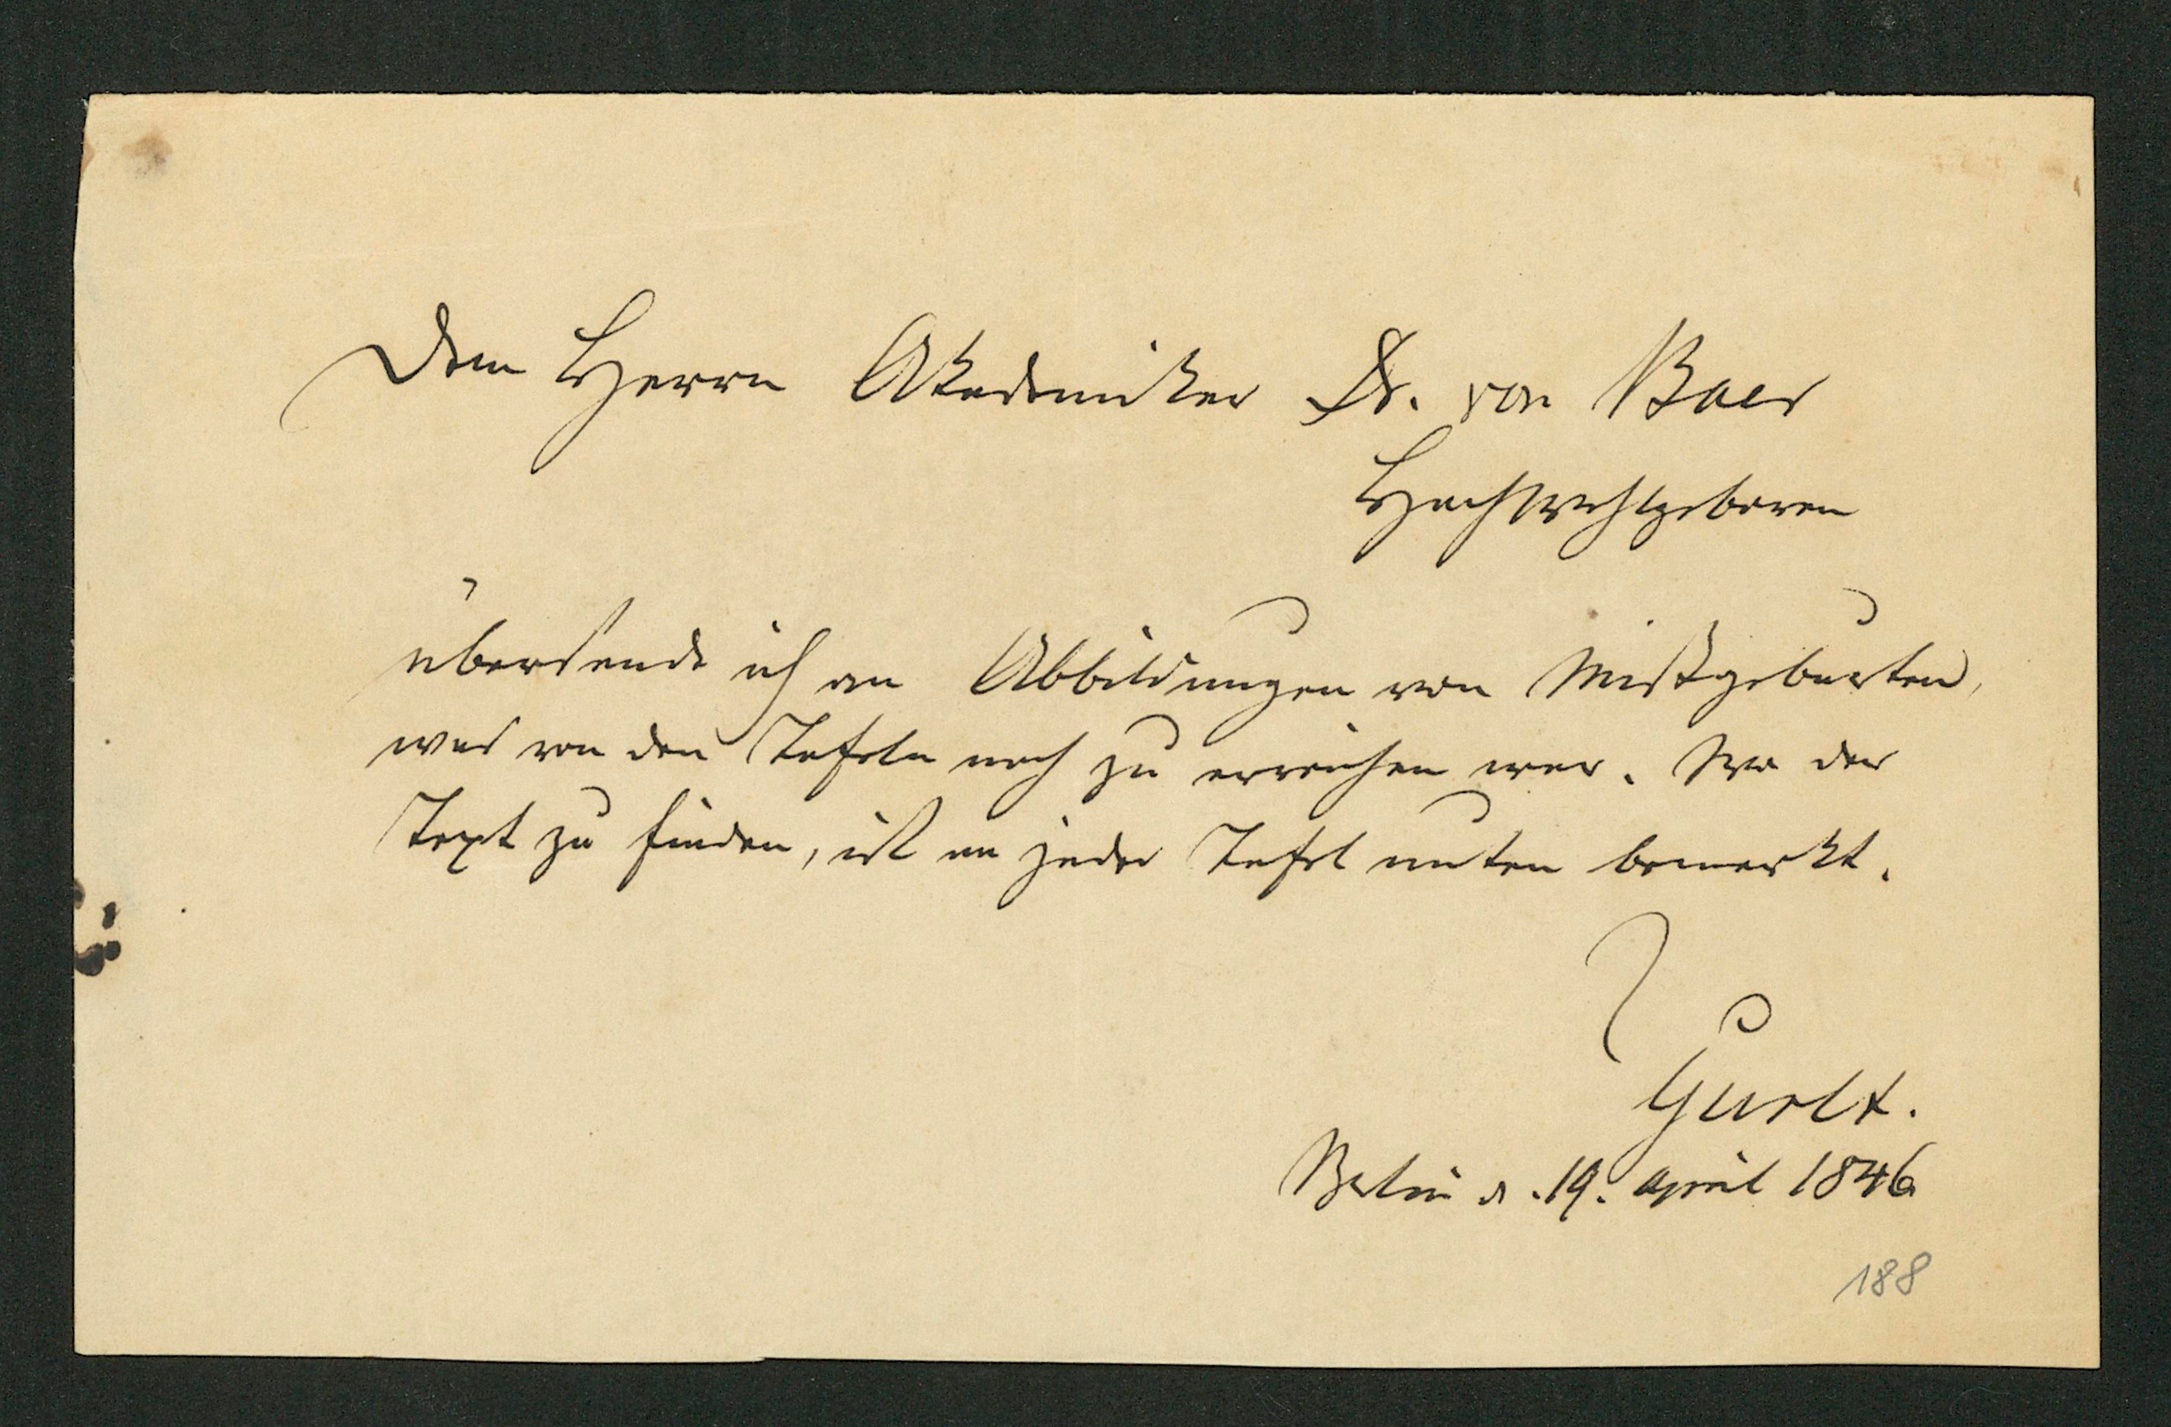 Dem Herrn Akademiker Dr. von Baer
Hochwohlgeboren
übersende ich an Abbildungen von Mißgeburten,
was von den Tafeln noch zu erreichen war. Wo der
Text zu finden, ist an jeder Tafel unten bemerkt.
Gurlt.
Berlin d. 19. April 1846
188